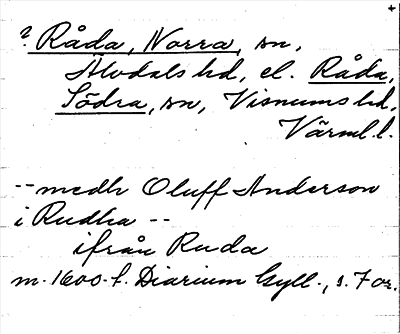 ? Råda, Norra, sn,
Älvdals hd, el. Råda,
Södra, sn, Visnums hd,
Värml. l.
-- medh Oluff Anderson
i Rudha --
ifrån Ruda
m. 1600-t. Diarium Gyll., s. 7 or.